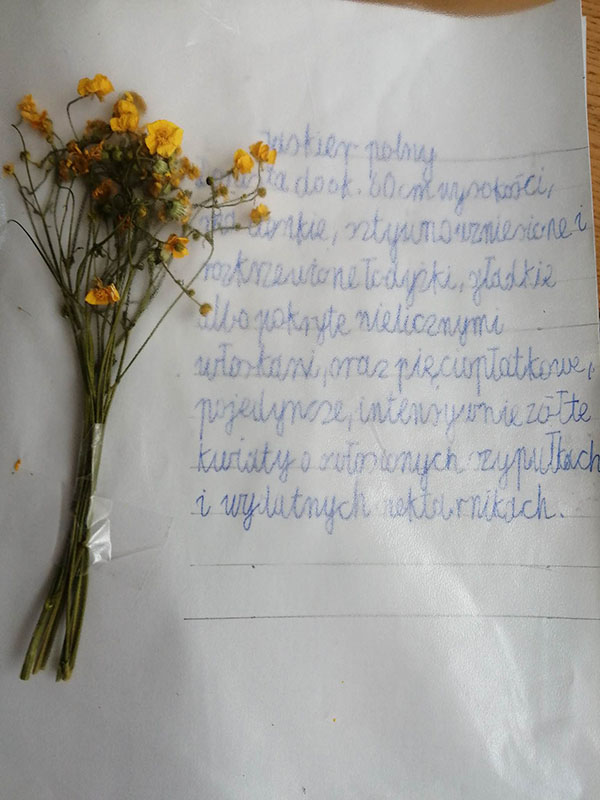 Jaskier polny
Dorasta do ok. 60 cm wysokości,
ma cienkie, sztywno wzniesione i
rozkrzewione łodyżki, gładkie
albo pokryte nielicznymi
włoskami, oraz pięciopłatkowe,
pojedyncze, intensywnie żółte
kwiaty o owłosionych szypułkach
i wydatnych nektarnikach.